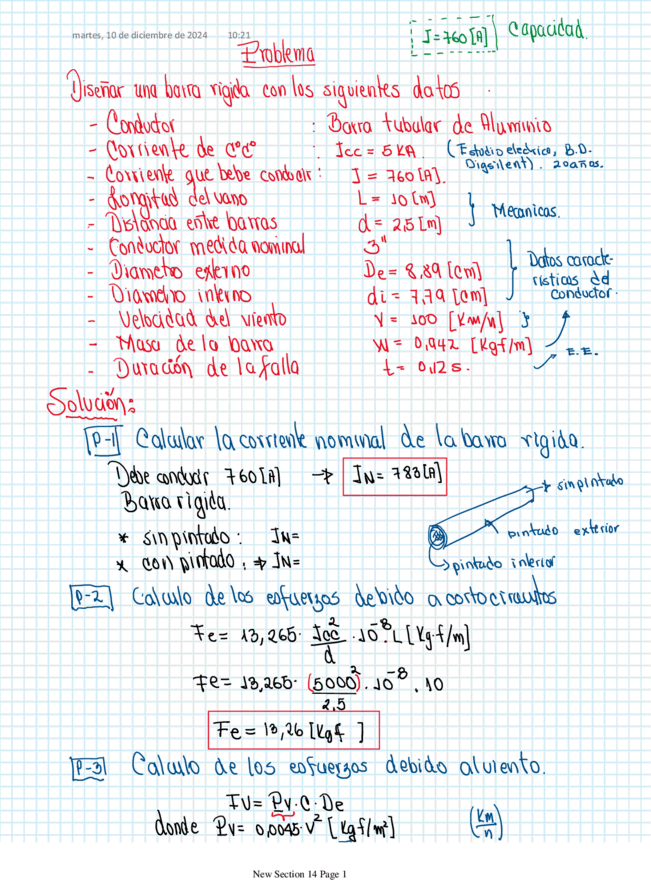 martes, 10 de diciembre de 2024 10:21
I=760[A] Capacidad.
Problema
Diseñar una barra rigida con los siguientes datos.
- Conductor : Barra tubular de Aluminio
- Corriente de C°C° : Icc = 5 KA (Estudio electrico, B.D. Digsilent). 20años.
- Corriente que bebe conducir: I = 760 [A].
- Longitad del vano L = 10 [m]
- Distancia entre barras d = 2,5 [m] } Mecanicas.
- Conductor medida nominal 3"
- Diametro externo De = 8,89 [cm]
- Diametro interno di = 7,79 [cm] } Datos caracte-risticas del conductor.
- Velocidad del viento V = 100 [Km/h] }
- Masa de la barra W = 0,942 [Kgf/m] → E.E.
- Duración de la falla t = 0,12 s.
Solución:
P-1 Calcular la corriente nominal de la barra rigida.
Debe conducir 760[A] → IN = 783[A]
Barra rigida.
* sin pintado : IN=
* con pintado : → IN=
→ sin pintado
pintado exterior
→ pintado interior
P-2 Calculo de los esfuerzos debido a cortocircuitos
Fe = 13,265 · Icc²/d · 10⁻⁸ · L [Kg·f/m]
Fe = 13,265 · (5000)²/2,5 · 10⁻⁸ · 10
Fe = 13,26 [Kgf ]
P-3 Calculo de los esfuerzos debido al viento.
FV = Pv · C · De
donde Pv = 0,0045·V² [Kgf/m²] (Km/h)
New Section 14 Page 1